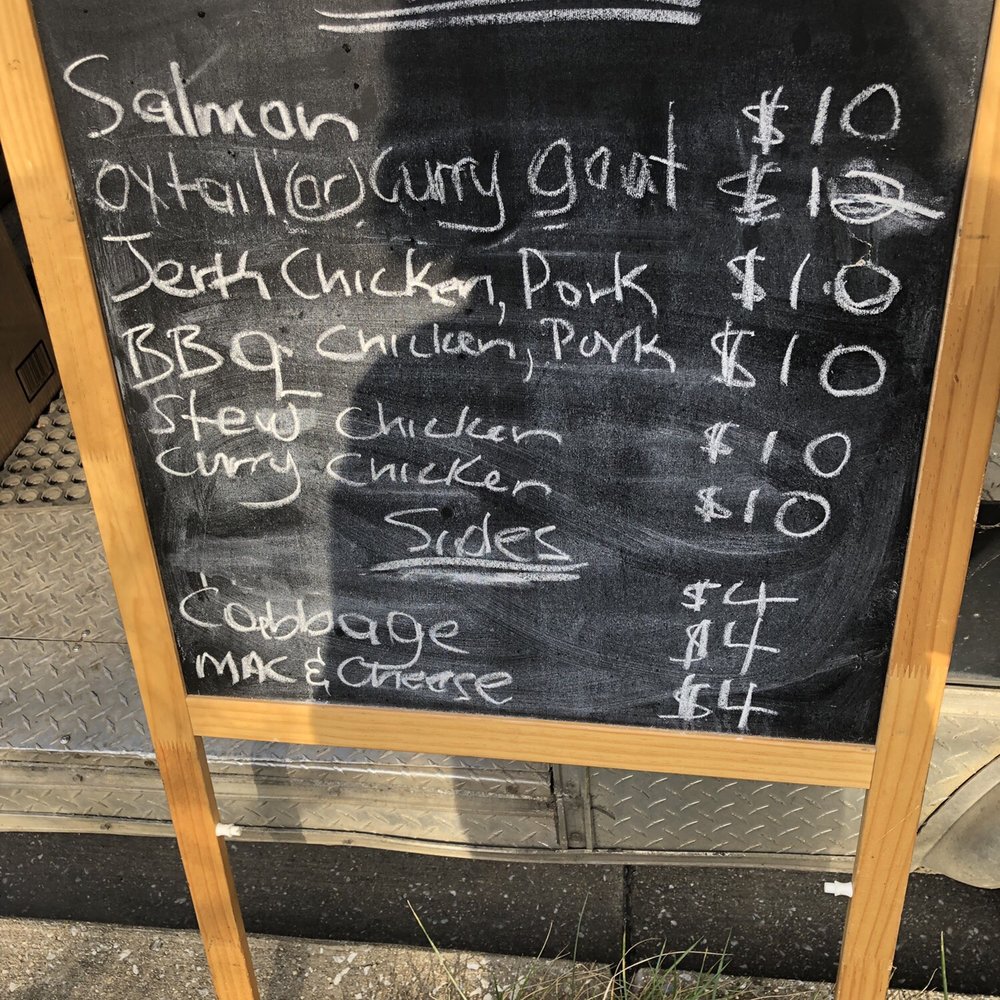 Salmon $10
oxtail (or) Curry goat $12
Jerk Chicken, Pork $10
BBQ Chicken, Pork $10
Stew Chicken $10
Curry Chicken $10
Sides
$4
Cabbage $4
MAC & Cheese $4